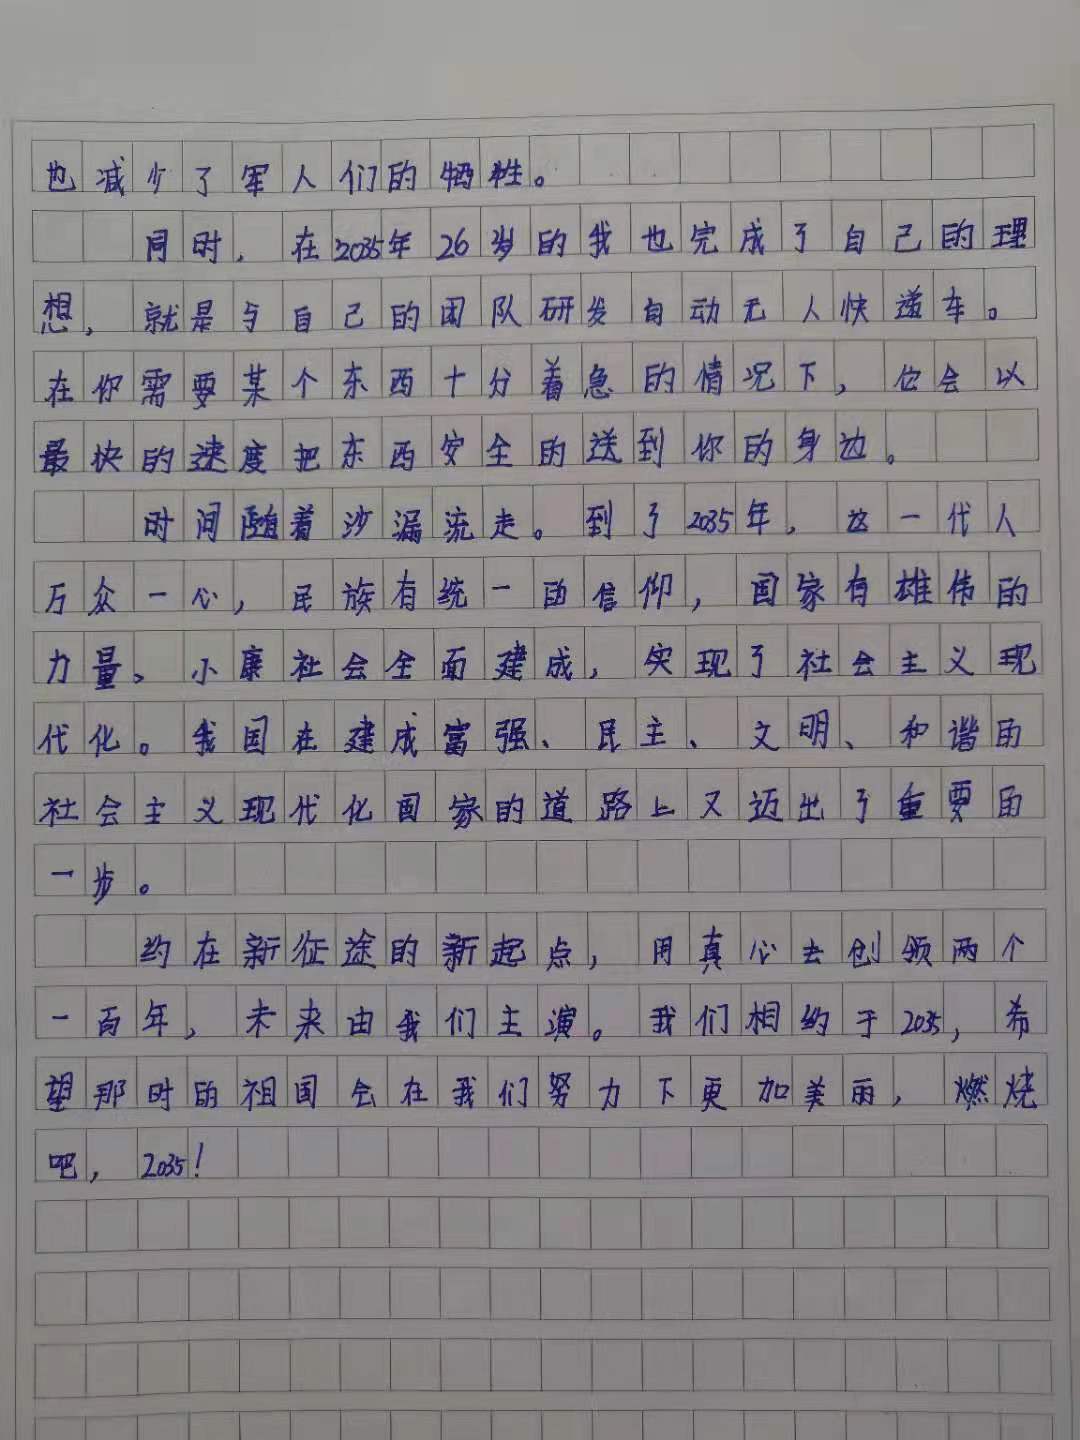 也减少了军人们的牺牲。
同时，在2035年26岁的我也完成了自己的理
想，就是与自己的团队研发自动无人快递车。
在你需要某个东西十分着急的情况下，它会以
最快的速度把东西安全的送到你的身边。
时间随着沙漏流走。到了2035年，这一代人
万众一心，民族有统一的信仰，国家有雄伟的
力量、小康社会全面建成，实现了社会主义现
代化。我国在建成富强、民主、文明、和谐的
社会主义现代化国家的道路上又迈出了重要的
一步。
约在新征途的新起点，用真心去创领两个
一百年，未来由我们主演。我们相约于2035，希
望那时的祖国会在我们努力下更加美丽，燃烧
吧，2035！